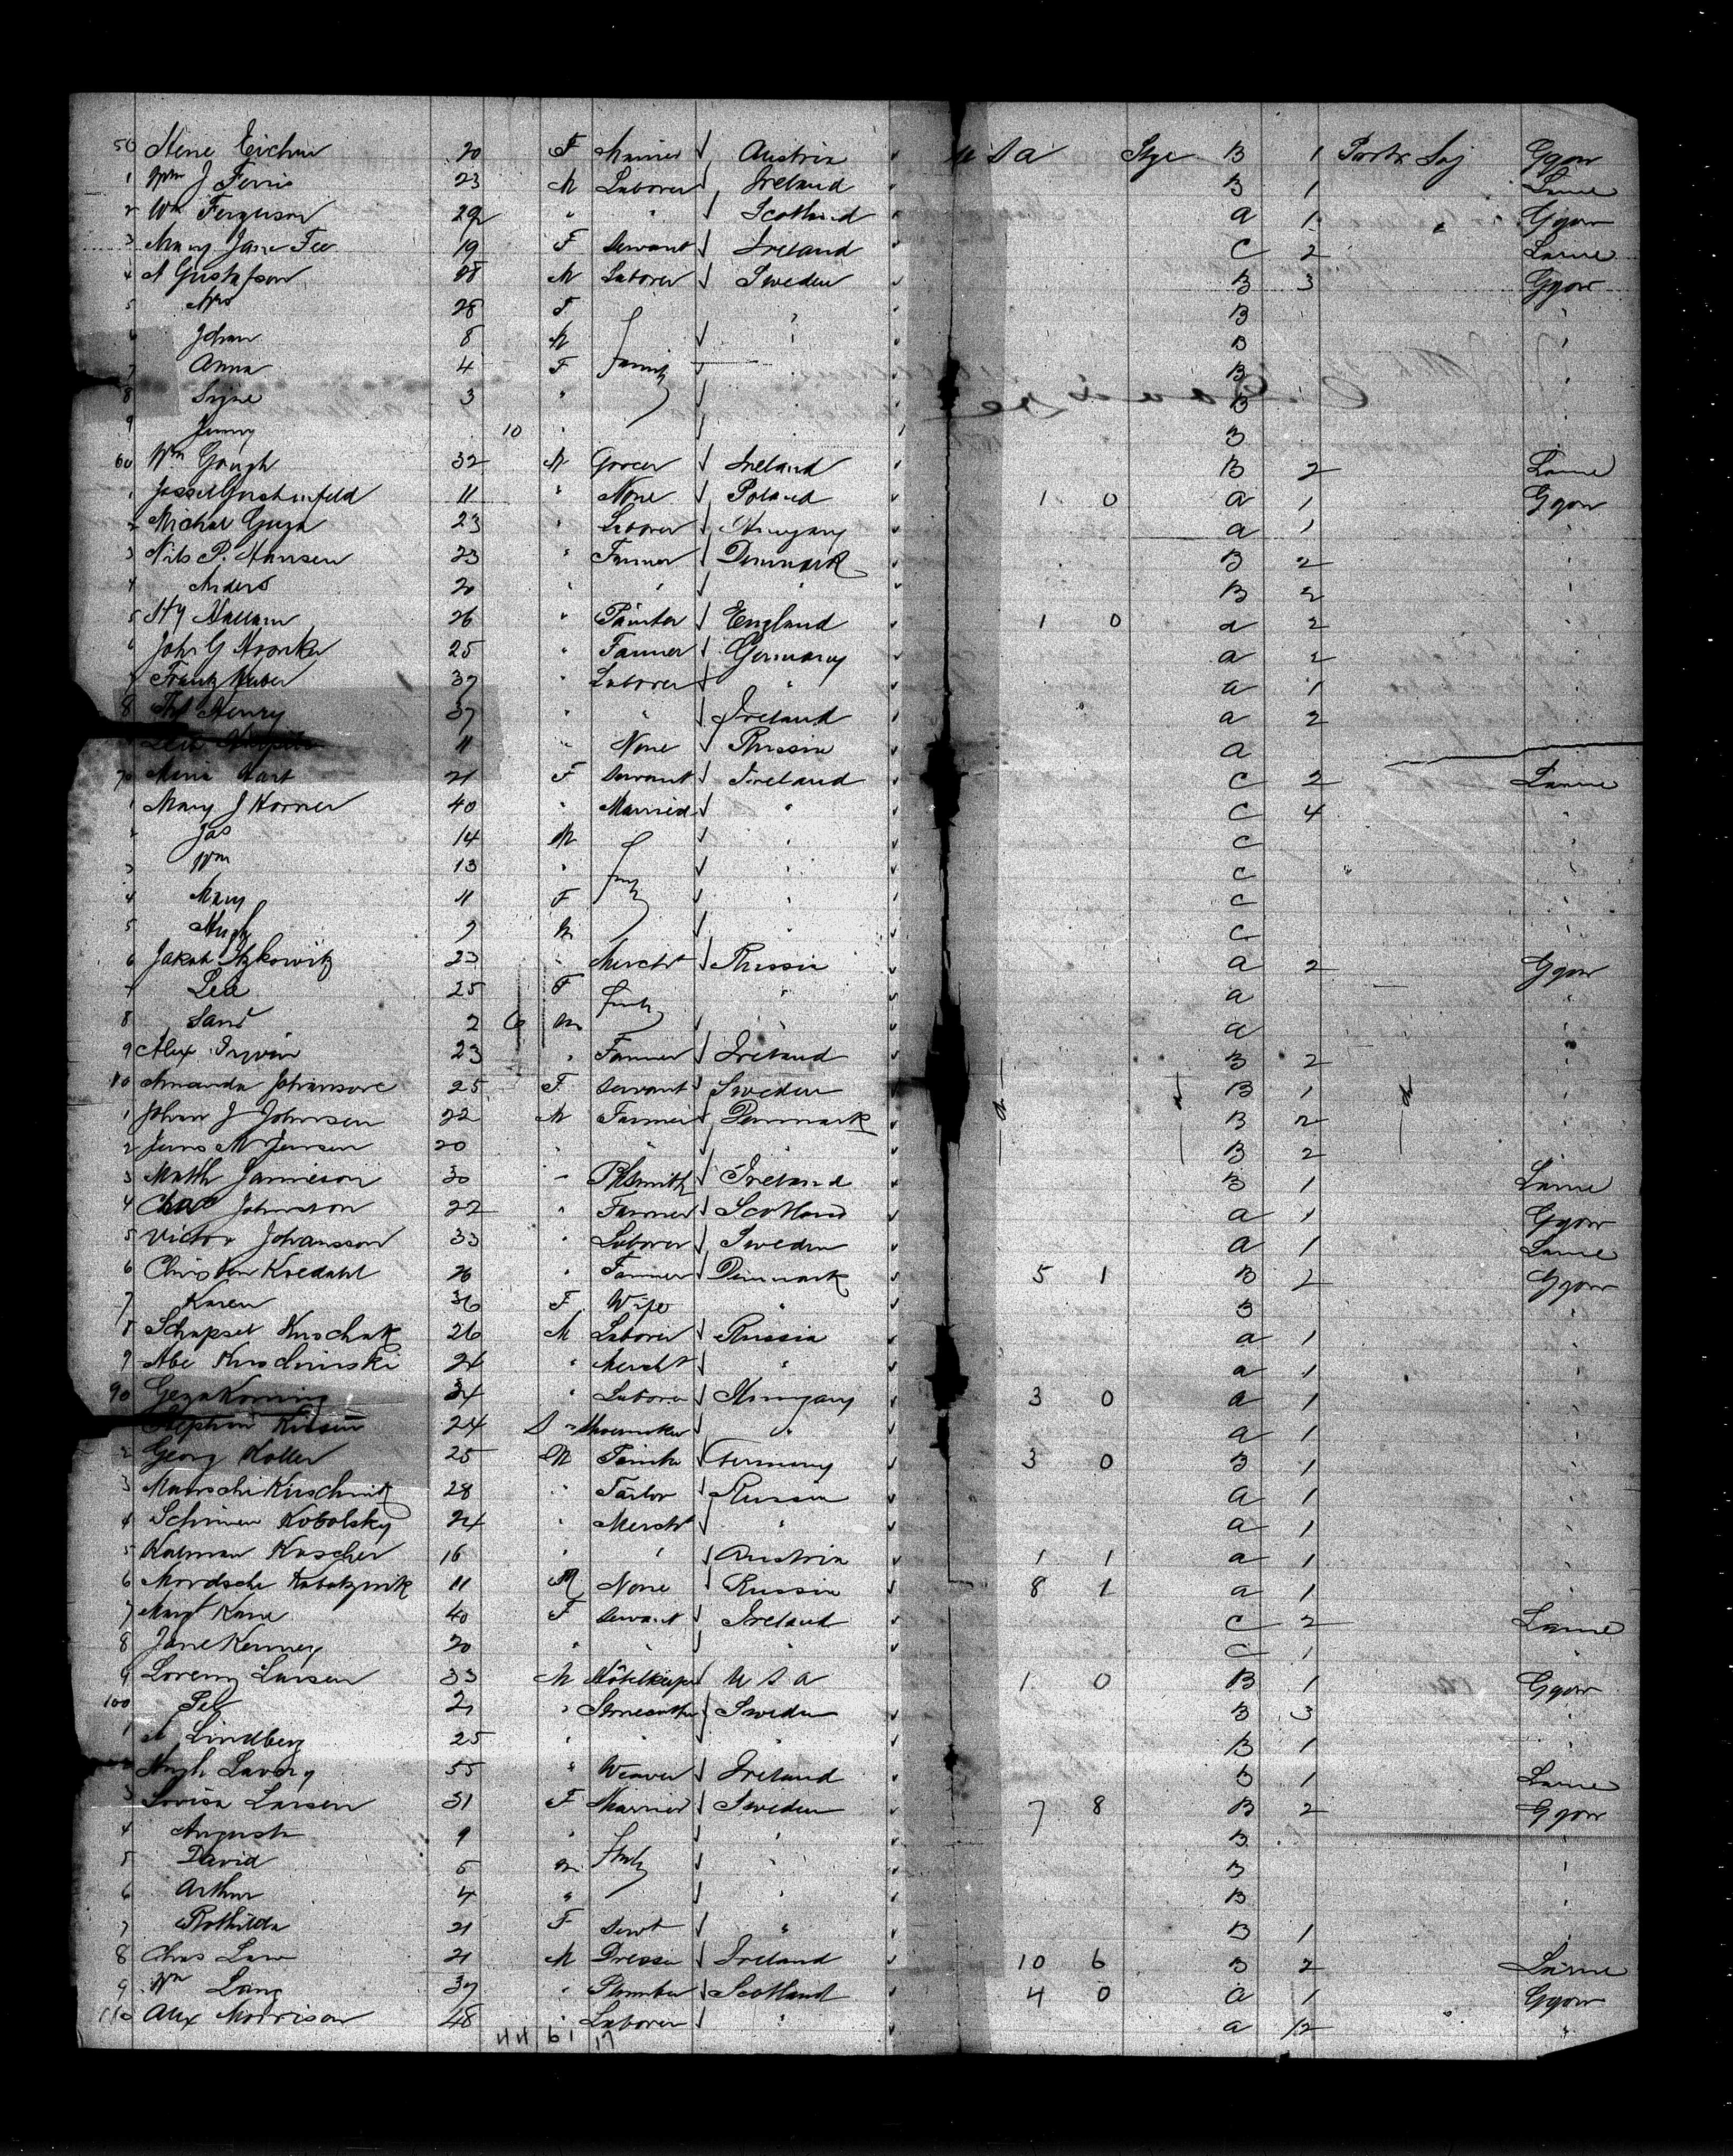 50 Eichen 20 F Austria U S A Stge B 1 Portr Soj Ggow
1 Wm J Ferris 23 M Laborer Ireland B 1 Larne
2 Wm Ferguson 29 " " Scotland a 1 " Ggow
3 Mary Jane Fee 19 F Servant Ireland C 2 Larne
4 A Gustafson 28 M Laborer Sweden B 3 Ggow
5 Mrs 28 F " B "
6 Johan 8 M B "
7 Anna 4 F family " B "
8 Signe 3 " " B "
9 Jenny 10 " B
60 Wm Gough 32 M Grocer Ireland B 2 Larne
1 11 " None Poland 1 0 a 1 Ggow
2 Guza 23 " Laborer Hungary a 1 "
3 Nils P. Hansen 23 " Farmer Denmark B 2 "
4 Anders 20 " " " B 2 "
5 Hy Hallam 26 " Painter England 1 0 a 2 "
6 John G 25 " Farmer Germany a 2 "
7 Frantz Huber 37 Laborer " a 1 "
8 Henry 37 " " Ireland a 2 "
11 " None Russia a
70 Hart 21 F Servant Ireland C 2 Larne
1 Mary J Horner 40 " Married " C 4 "
2 Jas 14 M " C "
3 Wm 13 " fmly " C " "
4 Mary 11 F " C "
5 Hugh 7 M " C "
6 Jakob Itzkowitz 23 " Mercht Russia a 2 Ggow
7 Lea 25 F fmly " a "
8 2 6 m a "
9 Alex Irwin 23 " Farmer Ireland B 2 "
80 Amanda Johansone 25 F Servant Sweden B 1 "
1 Johan J Johnsen 22 M Farmer Denmark B 2 "
2 Jens M Jensen 20 " " " B 2 "
3 Matth Jamieson 30 " Blksmith Ireland B 1 Larne
4 Chas Johnston 22 " Farmer Scotland a 1 Ggow
5 Victor Johansson 33 " Laborer Sweden a 1 Larne
6 Christen 26 " Farmer Denmark 5 1 B 2 Ggow
7 Karen 36 F Wife " B "
8 Schapsel Kuschak 26 M Laborer Russia a 1 "
9 Abe 24 " Mercht " a 1 "
90 Geza 34 " Laborer Hungary 3 0 a 1 "
24 " Shoemaker " a 1 "
2 Georg Koller 25 M Germany 3 0 B 1 "
3 28 " Tailor Russia a 1 "
4 Kobolsky 24 " Mercht " a 1 "
5 Kalman Kascher 16 " " Austria 1 1 a 1 "
6 Mordsche 11 M None Russia 8 1 a 1 "
7 Margt Kane 40 F Servant Ireland C 2 Larne
8 Jane Kenney 20 " " " C 1 "
9 Lorenz Larsen 33 M Hotelkeeper U S A 1 0 B 1 Ggow
100 21 " Stonecutter Sweden B 3 "
1 A Lindberg 25 " " " B 1 "
Hugh Lavery 55 " Weaver Ireland B 1 Larne
3 Lovisa Larsen 31 F Married Sweden 7 8 B 2 Ggow
4 Augusta 9 " fmly " B "
5 David 5 m " B "
6 Arthur 4 " " B "
7 21 F Servt " B 1 "
8 Chas Law 21 M Ireland 10 6 B 2 Larne
9 Wm Lang 37 " Plumber Scotland 4 0 a 1 Ggow
110 Alex Morrison 48 " Laborer " a 12 " "
44 61 17